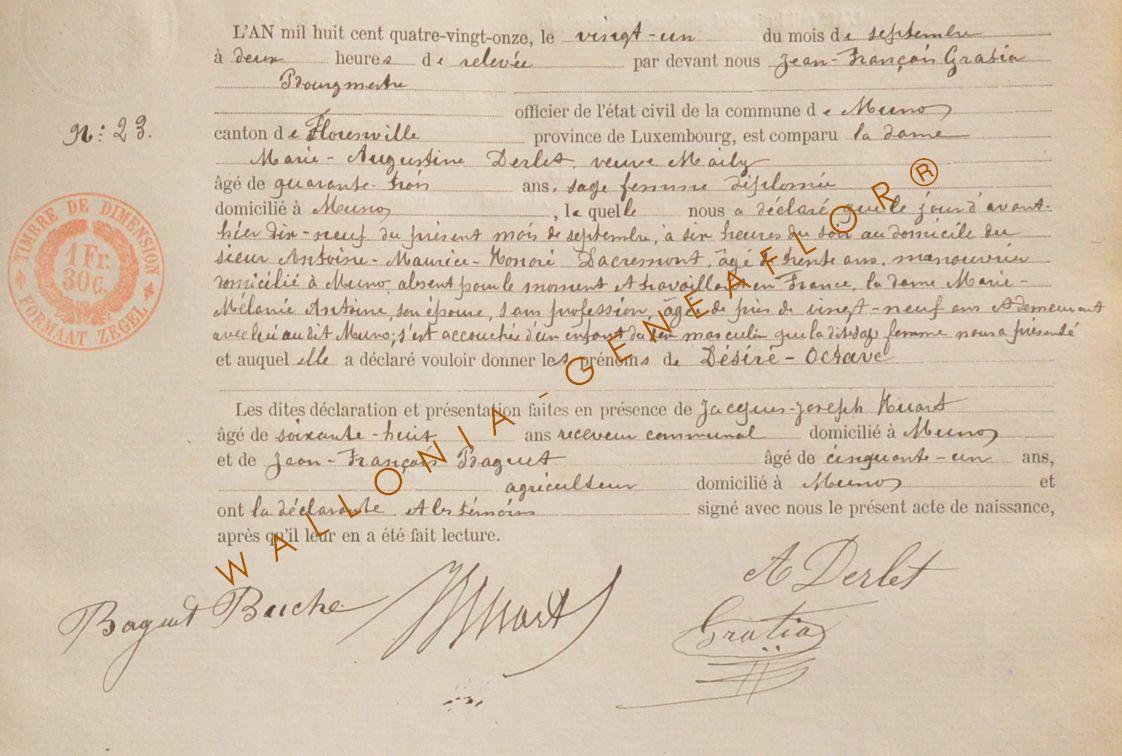 L'AN mil huit cent quatre-vingt-onze, le vingt-un du mois de septembre
à deux heures de relevée par devant nous Jean-François Gratia
Bourgmestre
officier de l'état civil de la commune de Muno
N: 23.
canton de Florenville province de Luxembourg, est comparu la dame
Marie-Augustine Derlet, veuve Maily
âgé de quarante-trois ans, sage femme diplomée
domicilié à Muno, laquelle nous a déclaré que le jour d'avant-
hier dix-neuf du présent mois de septembre, à six heures du soir au domicile du
sieur Antoine-Maurice-Honoré Lacremont, agé de trente ans, manouvrier
domicilié à Muno, absent pour le moment et travaillant en France, la dame Marie-
Mélanie Antoine, son épouse, sans profession, âgée de près de vingt-neuf ans et demeurant
avec lui au dit Muno, s'est accouchée d'un enfant du sexe masculin que la dite sage femme nous a présenté
et auquel elle a déclaré vouloir donner les prénoms de Désiré-Octave
Les dites déclaration et présentation faites en présence de Jacques-Joseph Huart
âgé de soixante-huit ans receveur communal domicilié à Muno
et de Jean-François Baguet âgé de cinquante-un ans,
agriculteur domicilié à Muno et
ont la déclarante et les témoins signé avec nous le présent acte de naissance,
après qu'il leur en a été fait lecture.
TIMBRE DE DIMENSION
1 Fr.
30 C.
FORMAAT ZEGEL
WALLONIA-GENEAFLOR®
A Derlet
Baguet Buche Huart
Gratia